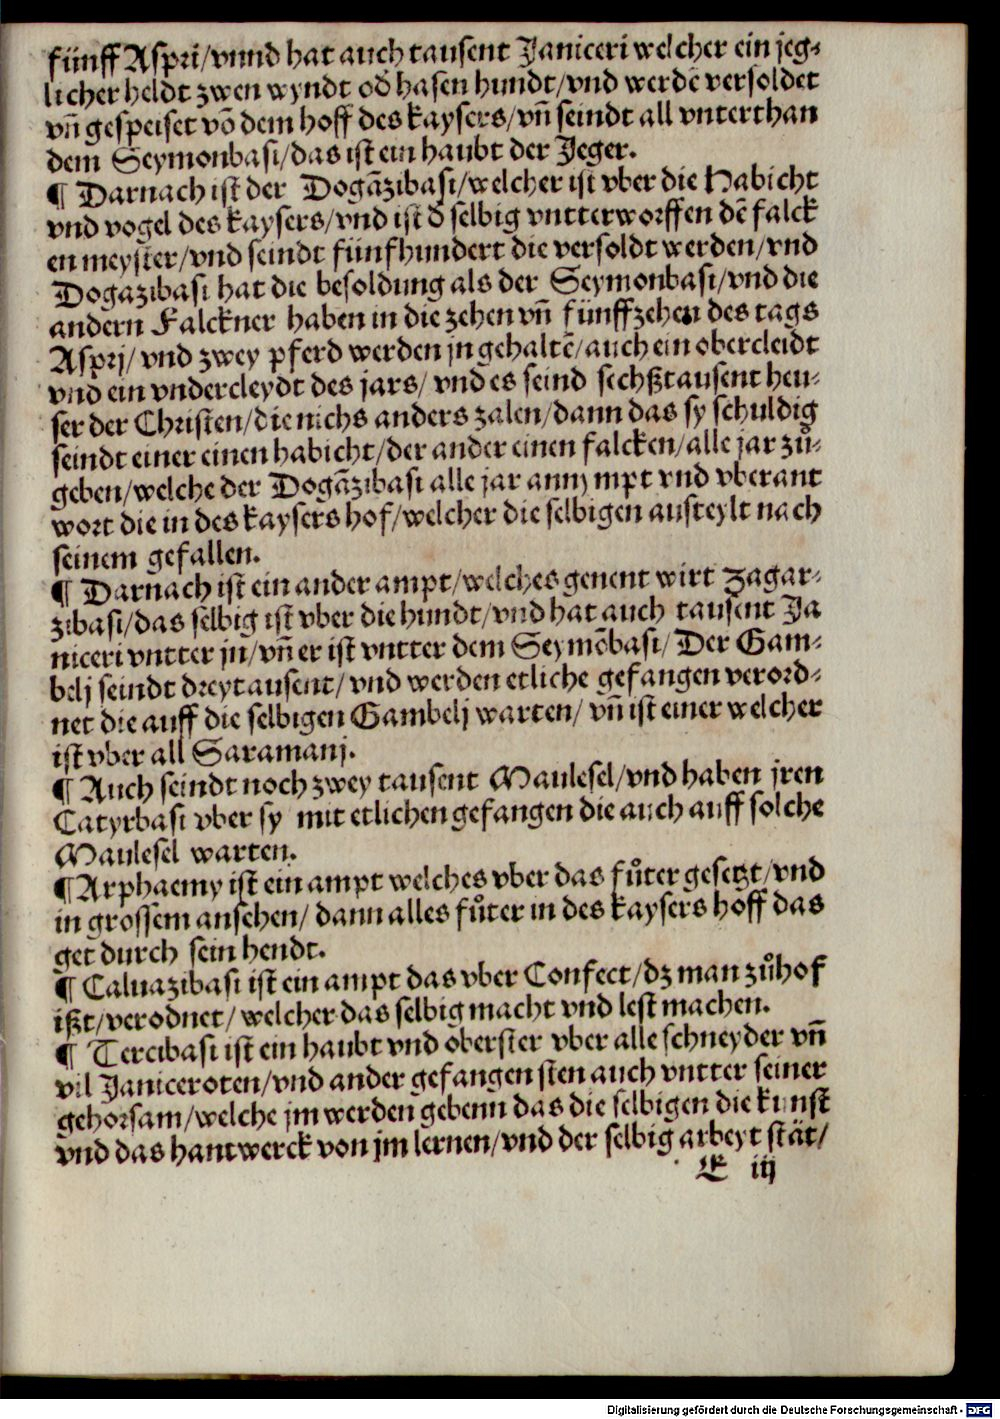 fünff Aspri/vnnd hat auch tausent Janiceri welcher ein jeg-
licher heldt zwen wyndt od̄ hasen hundt/vnd werdē versoldet
vñ gespeiset vō dem hoff des kaysers/vñ seindt all vnterthan
dem Seymonbasi/das ist ein haubt der Jeger.
¶ Darnach ist der Dogāzibasi/welcher ist vber die Habicht
vnd vogel des kaysers/vnd ist d̄ selbig vntterworffen dē falck
en meyster/vnd seindt fünfhundert die versoldt werden/vnd
Dogazibasi hat die besoldung als der Seymonbasi/vnd die
andern Falckner haben in die zehen vñ fünffzehen des tags
Asprj/vnd zwey pferd werden jn gehaltē/auch ein obercleidt
vnd ein vndercleydt des jars/vnd es seind sechßtausent heu-
ser der Christen/die nichs anders zalen/dann das sy schuldig
seindt einer einen habicht/der ander einen falcken/alle jar zů-
geben/welche der Dogāzibasi alle jar annympt vnd vberant
wort die in des kaysers hof/welcher die selbigen austeylt nach
seinem gefallen.
¶ Darnach ist ein ander ampt/welches genent wirt Zagar-
zibasi/das selbig ist vber die hundt/vnd hat auch tausent Ja
niceri vntter jn/vñ er ist vntter dem Seymōbasi/Der Gam-
belj seindt dreytausent/vnd werden etliche gefangen verord-
net die auff die selbigen Gambelj warten/vñ ist einer welcher
ist vber all Saramanj.
¶ Auch seindt noch zwey tausent Maulesel/vnd haben jren
Catyrbasi vber sy mit etlichen gefangen die auch auff solche
Maulesel warten.
¶ Arphaemy ist ein ampt welches vber das fůter gesetzt/vnd
in grossem ansehen/dann alles fůter in des kaysers hoff das
get durch sein hendt.
¶ Caluazibasi ist ein ampt das vber Confect/dz man zůhof
ißt/verodnet/welcher das selbig macht vnd lest machen.
¶ Tercibasi ist ein haubt vnd oberster vber alle schneyder vñ
vil Janiceroten/vnd ander gefangen sten auch vntter seiner
gehorsam/welche jm werden gebenn das die selbigen die kunst
vnd das hantwerck von jm lernen/vnd der selbig arbeyt stät/
E iij
Digitalisierung gefördert durch die Deutsche Forschungsgemeinschaft - DFG